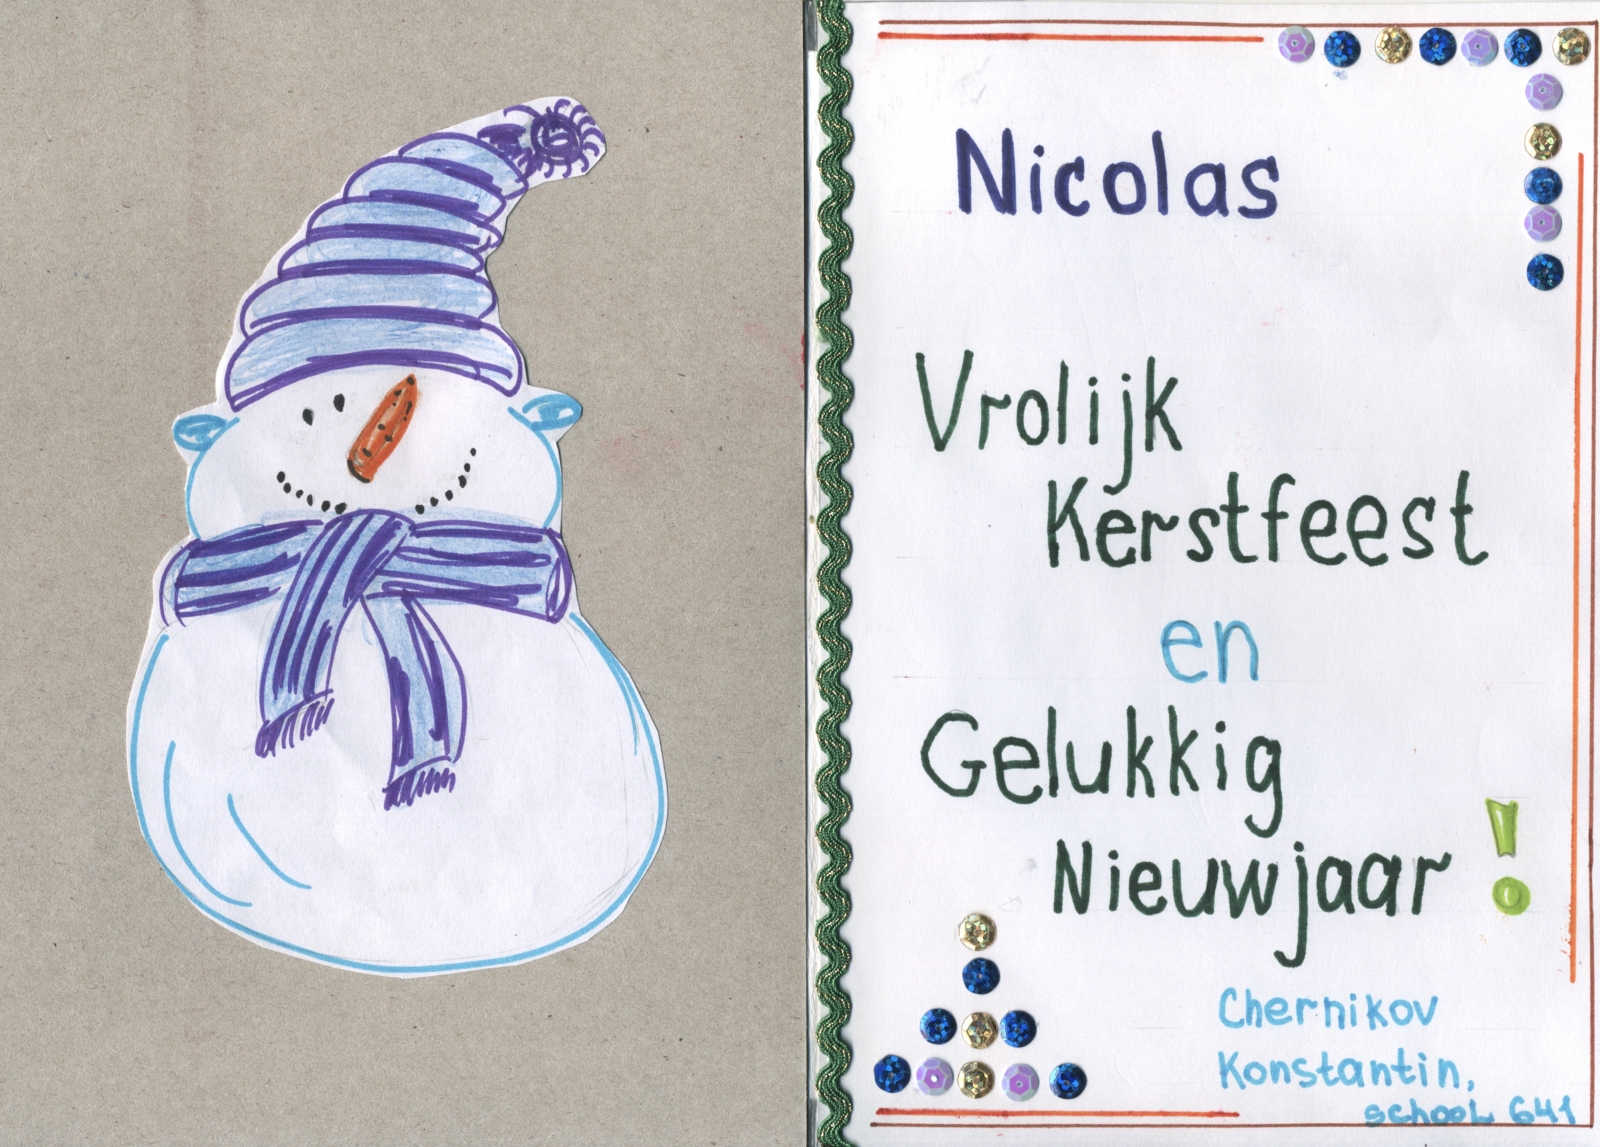 Nicolas
Vrolijk
Kerstfeest
en
Gelukkig
Nieuwjaar!
Chernikov
Konstantin,
school 641